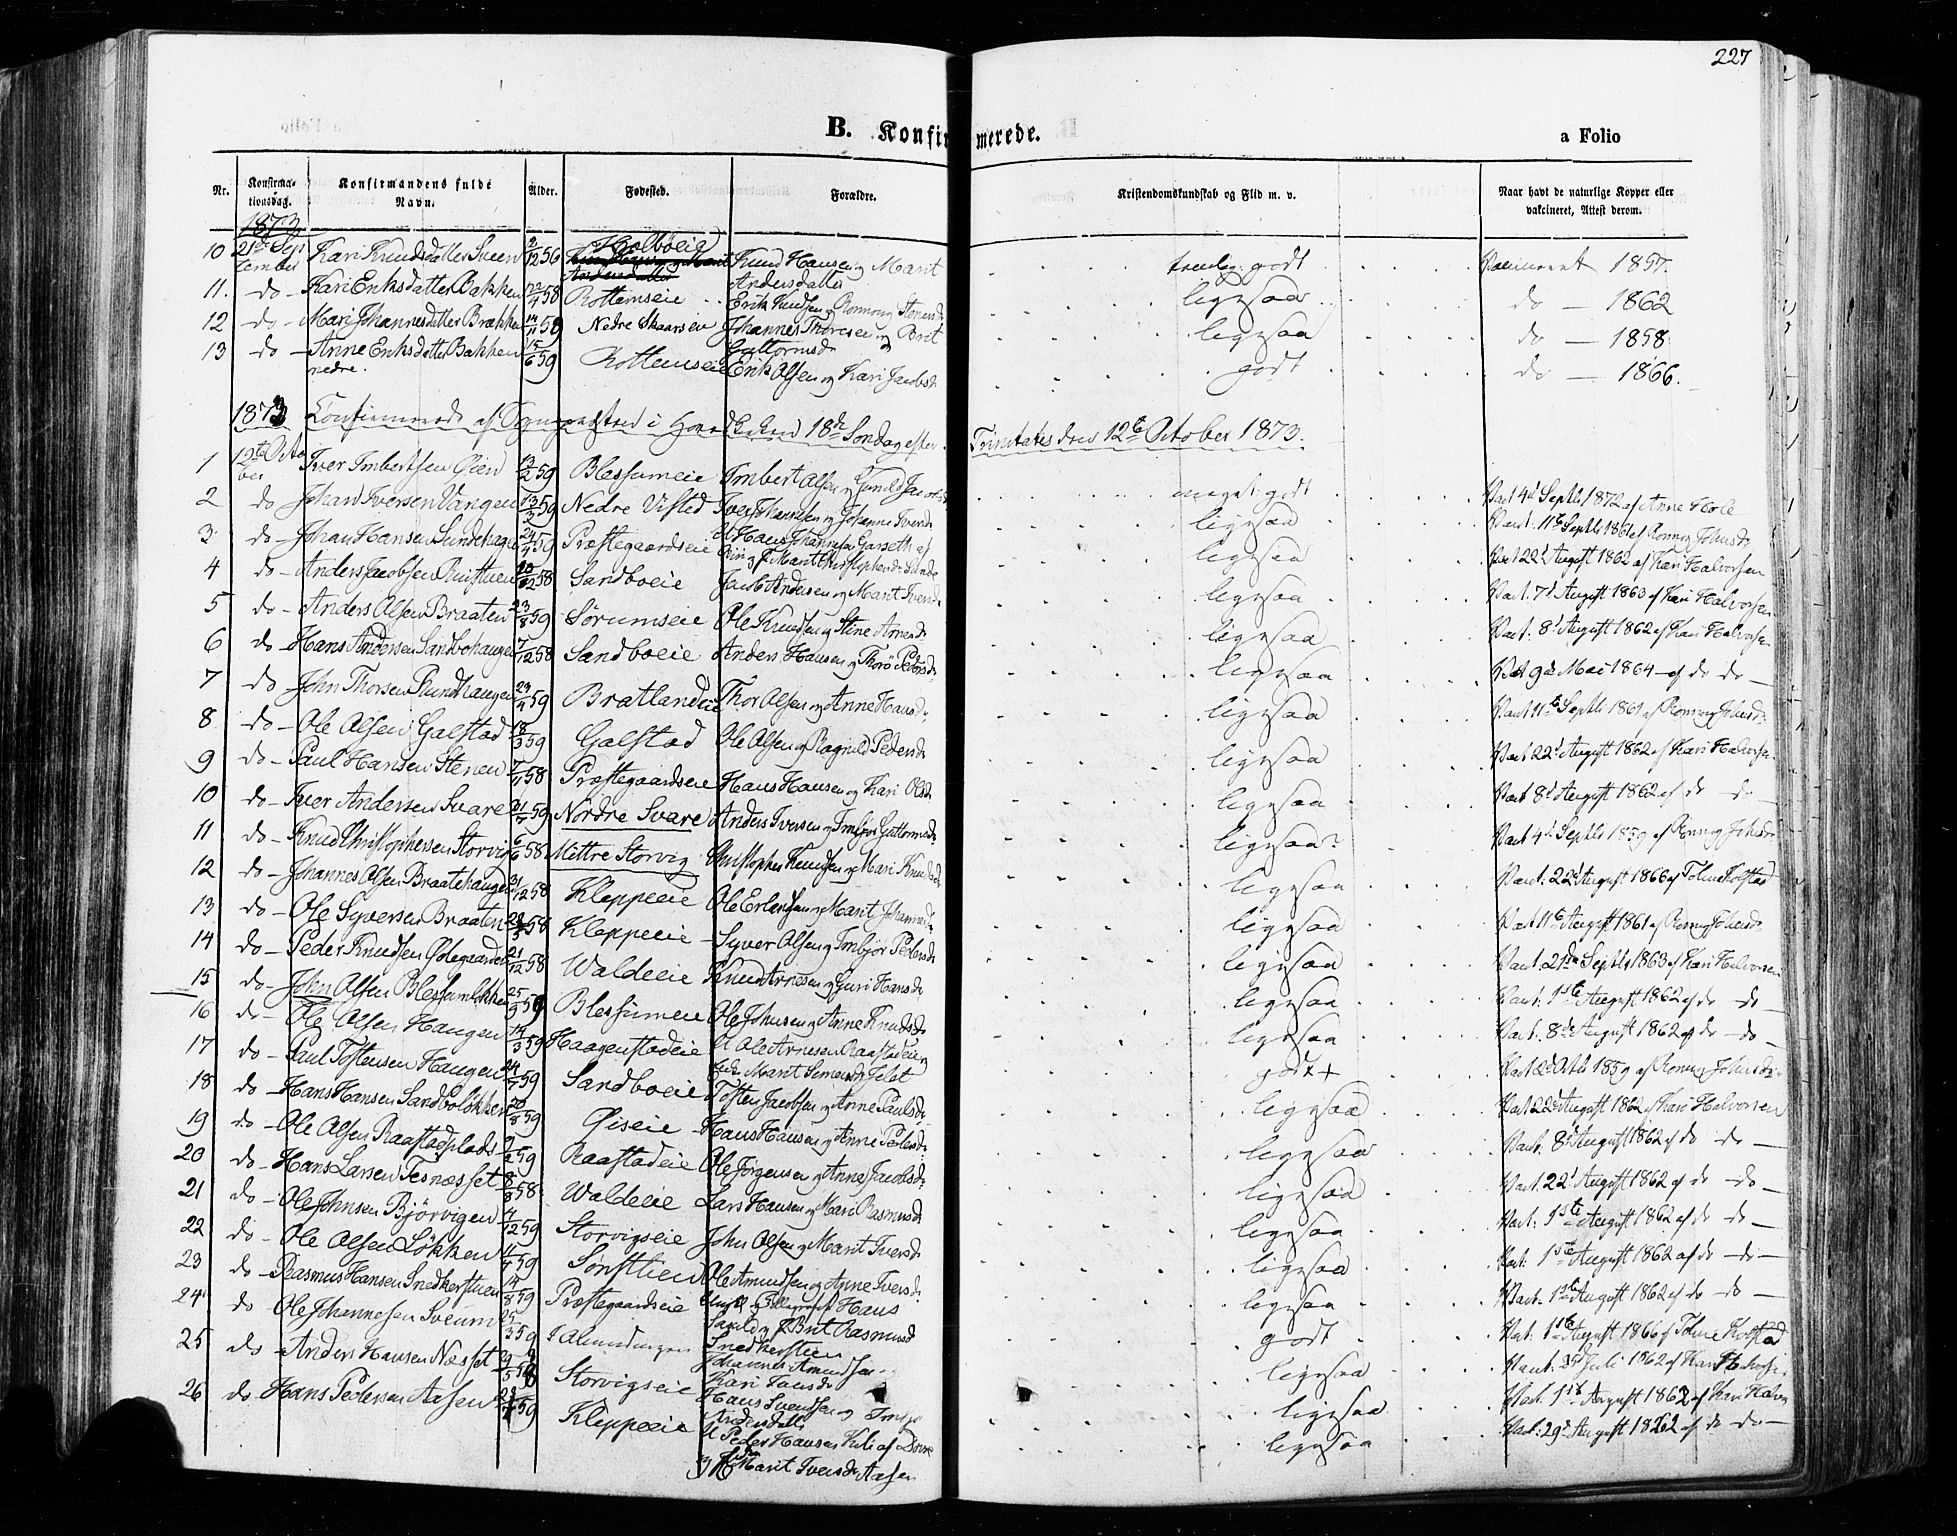 227
B. Konfirmerede.
a Folio
Nr. Konfirmationsdag. Konfirmandens fulde Navn. Alder. Fødested. Forældre. Kristendomskundskab og Flid m. v. Naar havt de naturlige Kopper eller vakcineret, Attest derom.
1873
10 21de September Kari Knudsdatter Sveen 2/12 56 Kolbøeie Knud Hansen og Marit Andersdatter godt 1857.
11. do Kari Eriksdatter Bakken 22/4 58 Rottemseie Erik Knudsen og Ronnoug Stensd. ligesaa do 1862
12 do Mari Johannesdatter Brækken 14/11 58 Nedre Skaarseie Johannes Thoresen og Brit Guttormsd. ligesaa do 1858
13 do Anne Eriksdatter Bakken nedre. 15/6 59 Rottemseie Erik Olsen og Kari Jacobsd. godt do 1866.
1873 Confirmerede af i Hovedkirken 18de Søndag efter Trinitatis den 12te October 1873.
1 12te October Iver Imbertsen Øien 13/2 59 Blessumeie Imbert Olsen og Gunild Jacobsd. meget godt Vact 4d Septb 1872 af Anne Hole
2 do Johan Iversen Vangen 13/3 59 Nedre Visted Iver Johannesen og Johanne Iversd. ligesaa Vact. 11te Septb 1861 af Ronnog Johnsd.
3 do Johan Hansen Sundehagen 24/4 59 Præstegaardseie U Hans Johannesen Garseth af og P Marit Christophersd. Sunde ligesaa Vact 22d August 1862 af Kari Halvorsen
4 do Anders Jacobsen Ruistuen 58 Sandboeie Jacob Andersen og Marit Iversd. ligesaa Vact. 7d August 1860 af Kari Halvorsen
5 do Anders Olsen Braaten 23/8 59 Sørumseie Ole Knudsen og Stine Arnesd. ligesaa Vact. 8d August 1862 af Kari Halvorsen
6 do Hans Andersen Sandbohaugen 7/12 58 Sandboeie Anders Hansen og Thorø Pedersd. ligesaa Vact 9de Mai 1864 af do do
7 do John Thorsen Rundhaugen 23/4 59 Bratlandeie Thor Olsen og Anne Hansd. ligesaa Vact 11te Septb 1861 af Ronnog Johnsd.
8 do Ole Olsen Galstad 18/3 59 Galstad Ole Olsen og Ragnild Pedersd. ligesaa Vact 22d August 1862 af Kari Halvorsen
9 do Paul Hansen Stenen 7/11 58 Præstegaardseie Hans Hansen og Kari Olsd. ligesaa Vact 8d August 1862 af do do
10 do Iver Andersen Svare 59 Nordre Svare Anders Iversen og Imbjør Guttormsd. ligesaa Vact 4d Septb 1859 af Ronnog Johnsd.
11 do Knud Christophersen Storvig 6/6 58 Mittre Storvig Christopher Knudsen og Mari Knudsd. ligesaa Vact. 22d August 1866 af Toline Kolstad
12 do Johannes Olsen Braatehaugen 31/12 58 Kleppeeie Ole Erlandsen og Marit Johannesd. ligesaa Vact 11te August 1861 af Ronnog Johnsd.
13 do Ole Syversen Braaten 58 Kleppeeie Syver Olsen og Imbjør Pedersd. ligesaa Vact. 21de Septb 1863 af Kari Halvorsen
14 do Peder Knudsen Ødegaarden 21/12 58 Waldeeie Knud Arnesen og Guri Hansd. ligesaa Vact. 1ste August 1862 af do do
15 do John Olsen Blessumløkken 25/9 59 Blessumeie Ole Johnsen og Anne Knudsd. ligesaa Vact. 8de August 1862 af do do
16 do Ole Olsen Haugen 14/3 59 Haagenstadeie U Ole Arnesen Raastadeie og Marit Simensd. Jelst godt+ Vact 2d Octb 1859 af Ronnog Johnsd.
17 do Paul Tostensen Haugen 59 Sandboeie Tosten Jacobsen og Anne Paulsd. ligesaa Vact 22d August 1862 af Kari Halvorsen
18 do Hans Hansen Sandboløkken 20/8 59 Øiseie Hans Hansen og Anne Pedersd. ligesaa Vact. 8d August 1862 af do do
19 do Ole Olsen Raastadplads 59 Raastadeie Ole Jørgensen og Anne Jacobsd. ligesaa Vact. 22d August 1862 af do do
20 do Hans Larsen Tesnæsset 8/8 58 Waldeeie Lars Hansen og Mari Rasmusd. ligesaa Vact. 1ste August 1862 af do do
21 do Ole Johnsen Bjørvigen 4/12 59 Storvigseie John Olsen og Marit Iversd. ligesaa Vact. 1ste August 1862 af do do
22 do Ole Olsen Løkken 11/4 59 Sønstlien Ole Amundsen og Anne Iversd. ligesaa Vact. 1ste August 1862 af do do
23 do Rasmus Hansen Snedkerstuen 14/8 59 Præstegaardseie Hans og P Brit Rasmusd Snedkerstuen godt Vact. 1ste August 1866 af Toline Kolstad
24 do Ole Johannesen Sveum 25/3 59 Johannes Amundsen Kari Hansd. ligesaa Vact. Juli 1862 af Kari Halvorsen
25 do Anders Hansen Næsset 29/5 58 Storvigseie Hans Svendsen og Andersdatter ligesaa Vact. 1ste August 1862 af Kari Halvorsen
26 do Hans Pedersen Aasen 59 Kleppeeie U Peder Hansen af Dovre og P Marit Iversd. Aasen ligesaa Vact. 29d August 1862 af do do